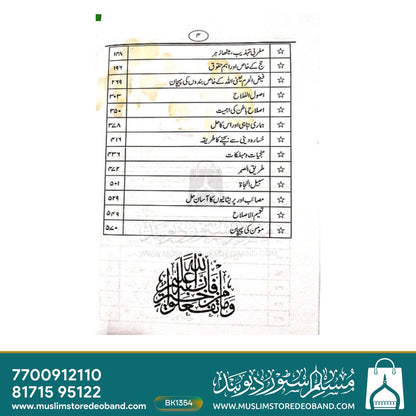 ۳
☆ مغربی تہذیب، میٹھا زہر ۱۳۸
☆ حج کے خاص اور اہم حقوق ۱۹۶
☆ فیض الحرم یعنی اللہ کے خاص بندوں کی پہچان ۲۶۹
☆ اصول الفلاح ۳۰۳
☆ اصلاح باطن کی اہمیت ۳۵۰
☆ ہماری تباہی اور اس کا حل ۳۷۸
☆ خسارہ دینی سے بچنے کا طریقہ ۴۱۶
☆ منجیات و مہلکات ۴۳۶
☆ طریق الصبر ۴۷۲
☆ سبیل النجاۃ ۵۰۱
☆ مصائب اور پریشانیوں کا آسان حل ۵۲۹
☆ تفہیم الاصلاح ۵۴۹
☆ مؤمن کی پہچان ۵۷۰
وما تفعلوا من خير فإن الله به عليم
7700912110
81715 95122
www.muslimstoredeoband.com
BK1354
مسلم سٹور دیوبند
WWW.MUSLIMSTOREDEOBAND.COM